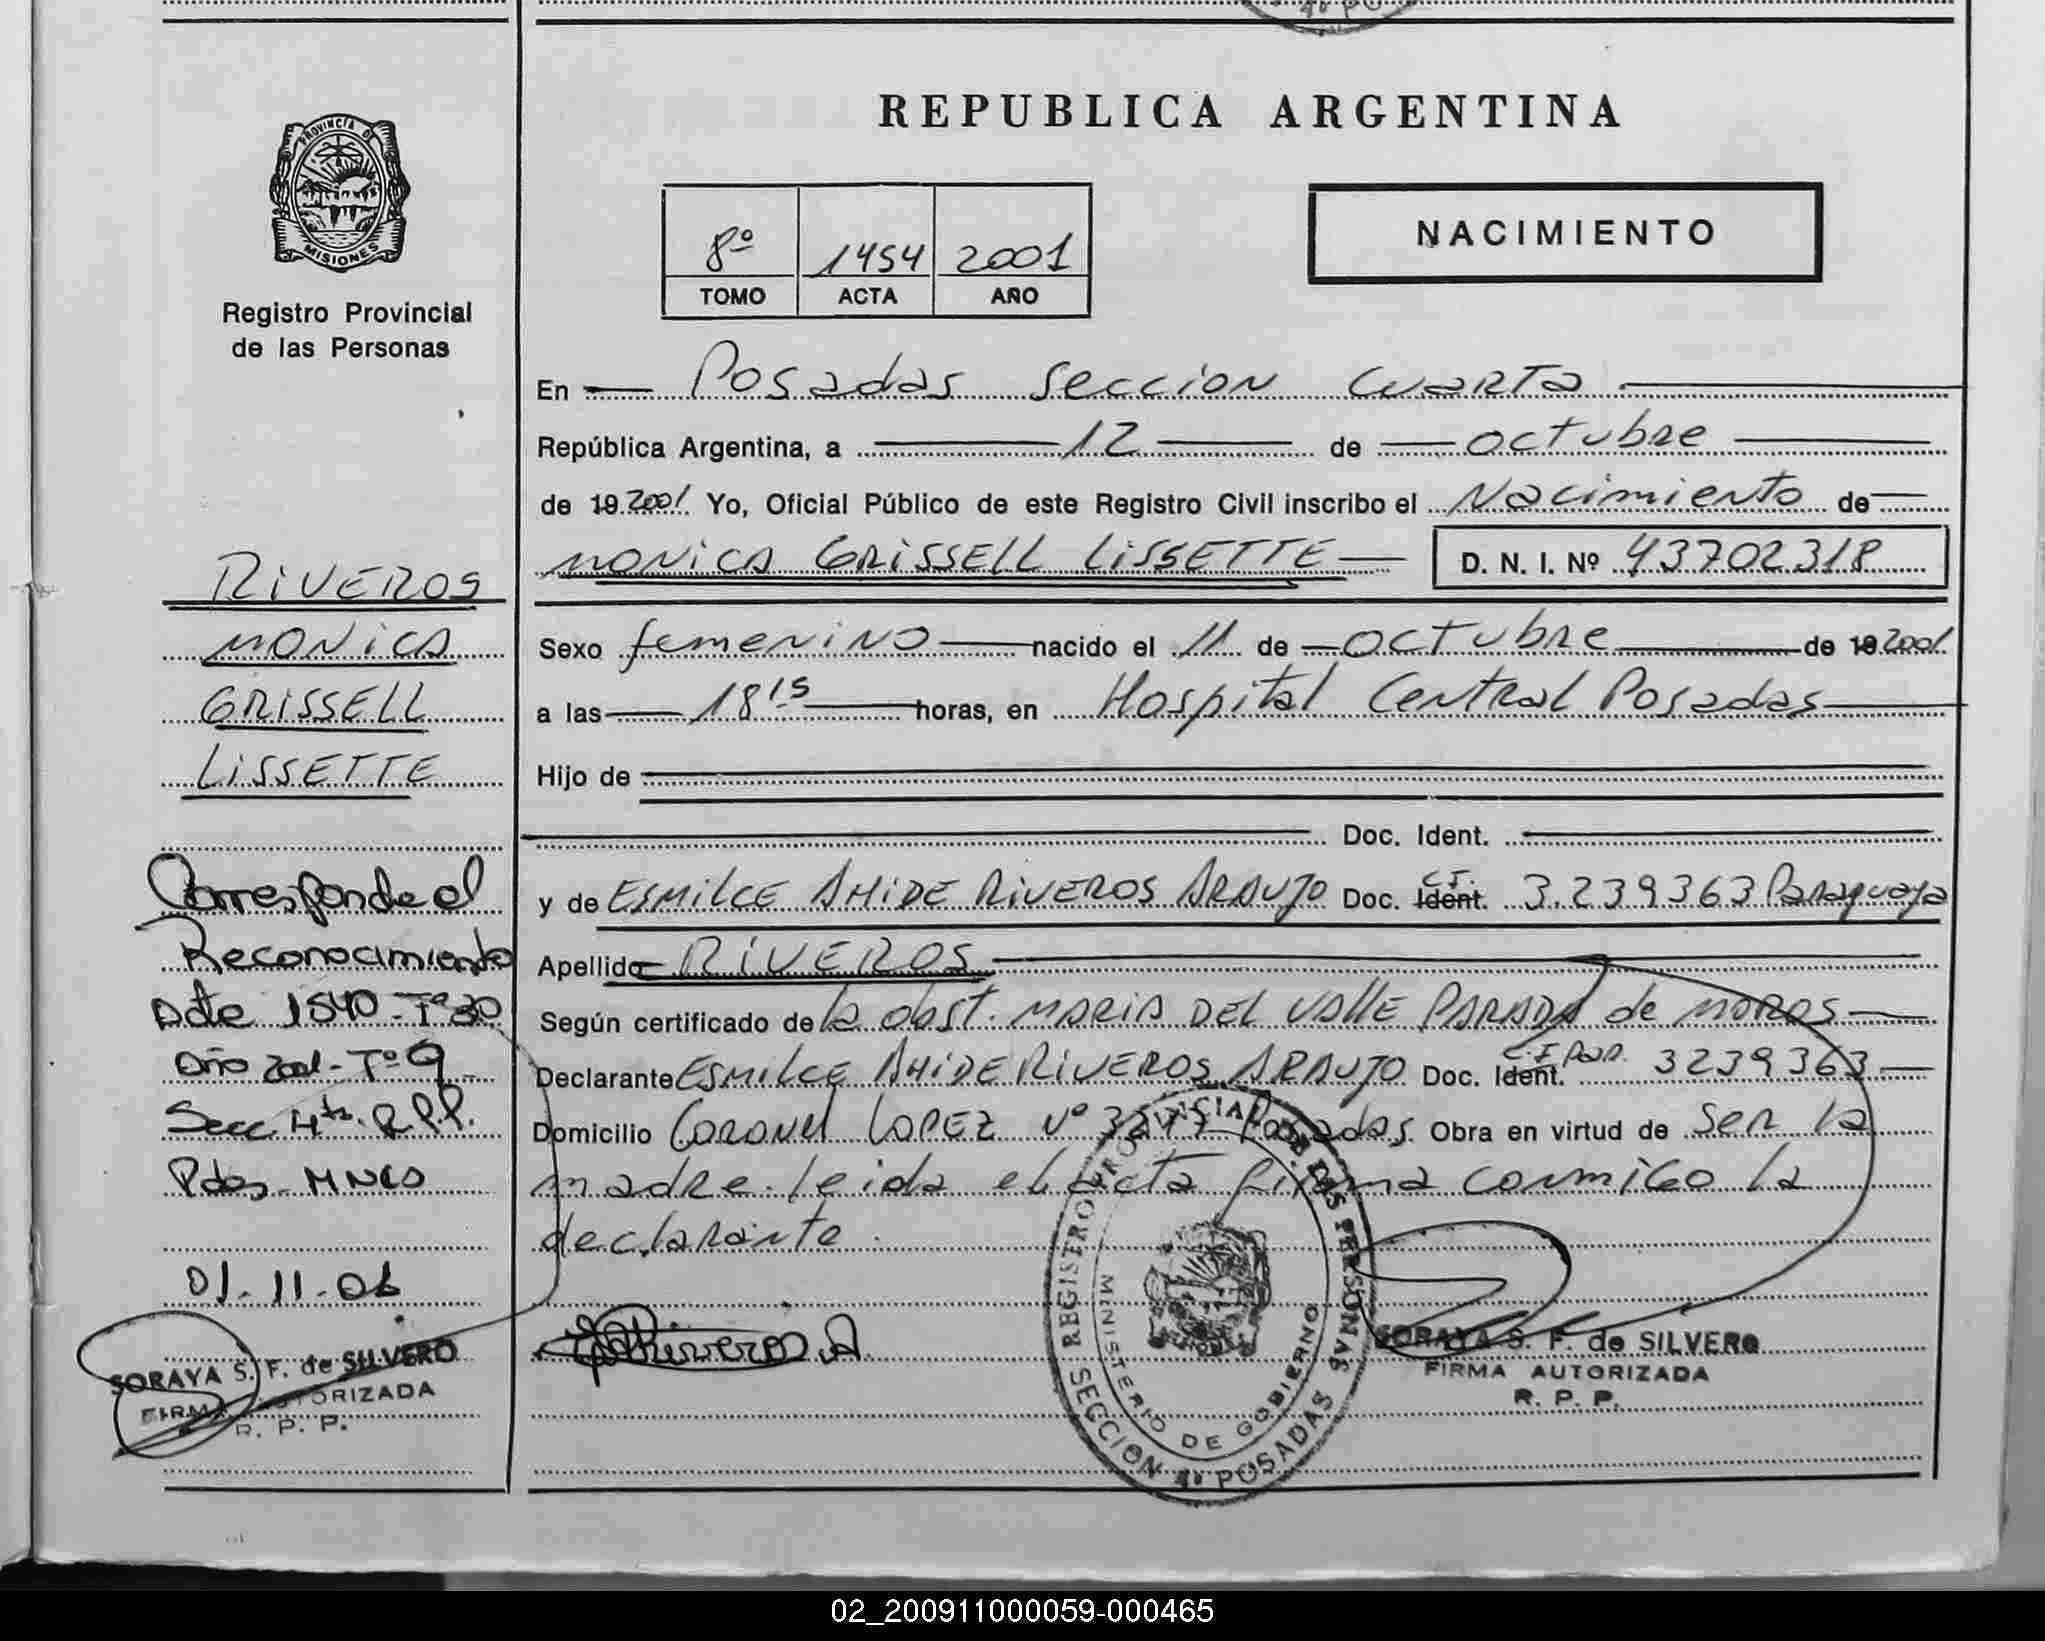 4º PO
PROVINCIA DE
MISIONES
Registro Provincial
de las Personas
RIVEROS
MONICA
GRISSELL
LISSETTE
Corresponde el
Reconocimiento
Acta 1540 - Tº 30
Año 2001 - Tº 9
Secc 4ta. R.P.P.
Pdas - MNES
01-11-06
SORAYA S. F. de SILVERO
FIRMA AUTORIZADA
R. P. P.
REPUBLICA ARGENTINA
8º 1454 2001
TOMO ACTA AÑO
NACIMIENTO
En Posadas Seccion Cuarta
República Argentina, a 12 de octubre
de 19 2001 Yo, Oficial Público de este Registro Civil inscribo el Nacimiento de
MONICA GRISSELL LISSETTE D. N. I. Nº 43702318
Sexo femenino nacido el 11 de octubre de 19 2001
a las 18 15 horas, en Hospital Central Posadas
Hijo de
Doc. Ident.
y de ESMILCE AHIDE RIVEROS ARAUJO Doc. Ident. C.I. 3.239363 Paraguaya
Apellido RIVEROS
Según certificado de la obst. MARIA DEL VALLE PARADA de MOROS
Declarante ESMILCE AHIDE RIVEROS ARAUJO Doc. Ident. C.I. Par. 3239363
Domicilio CORONEL LOPEZ Nº Posadas. Obra en virtud de Ser la
madre. leida el acta firma conmigo la
declarante.
Riveros A.
REGISTRO PROVINCIAL DE LAS PERSONAS
SECCION 4º POSADAS
MINISTERIO DE GOBIERNO
SORAYA S. F. de SILVERO
FIRMA AUTORIZADA
R. P. P.
02_200911000059-000465